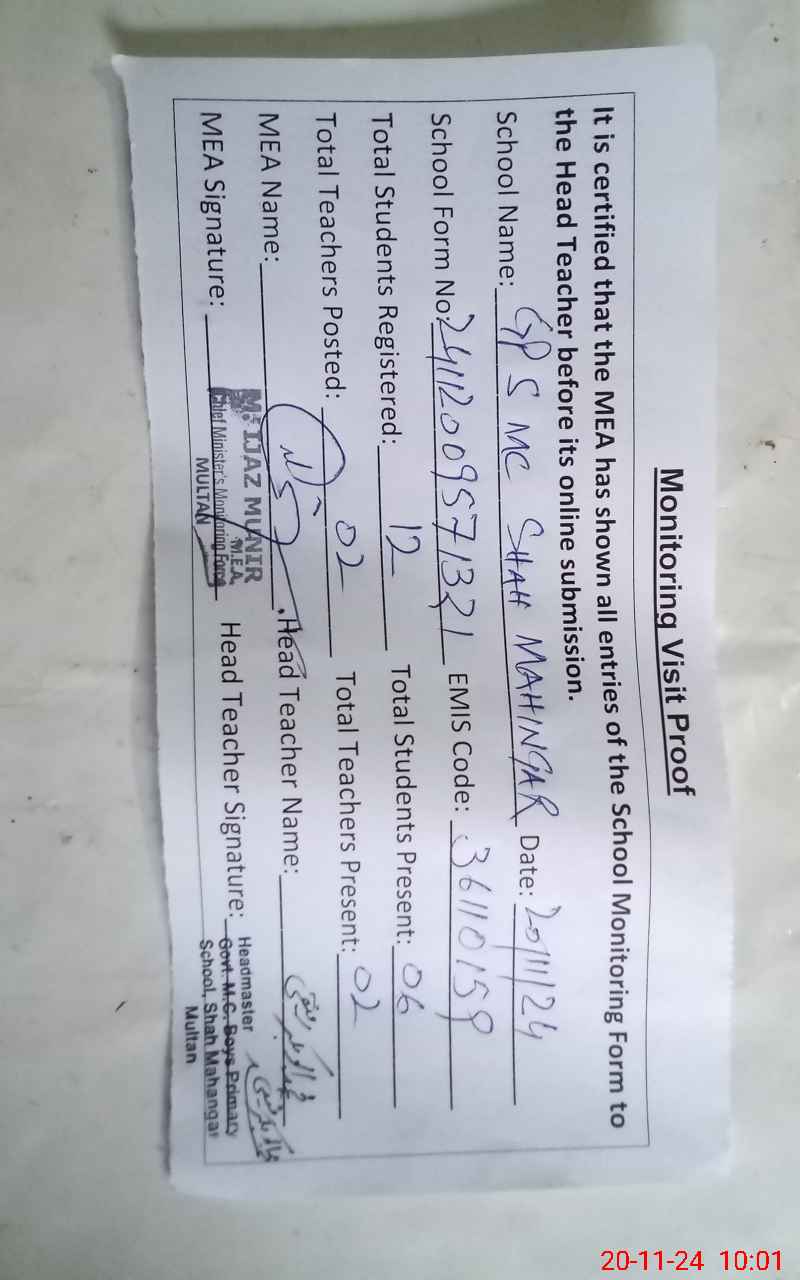 Monitoring Visit Proof
It is certified that the MEA has shown all entries of the School Monitoring Form to
the Head Teacher before its online submission.
School Name: GPS MC SHAH MAHINGAR Date: 20/11/24
School Form No: 24112009571321 EMIS Code: 36110159
Total Students Registered: 12 Total Students Present: 06
Total Teachers Posted: 02 Total Teachers Present: 02
MEA Name: Head Teacher Name:
MEA Signature: Head Teacher Signature:
M. IJAZ MUNIR
M.E.A.
Chief Minister's Monitoring Force
MULTAN
Headmaster
Govt. M.C. Boys Primary
School, Shah Mahangar
Multan
20-11-24 10:01